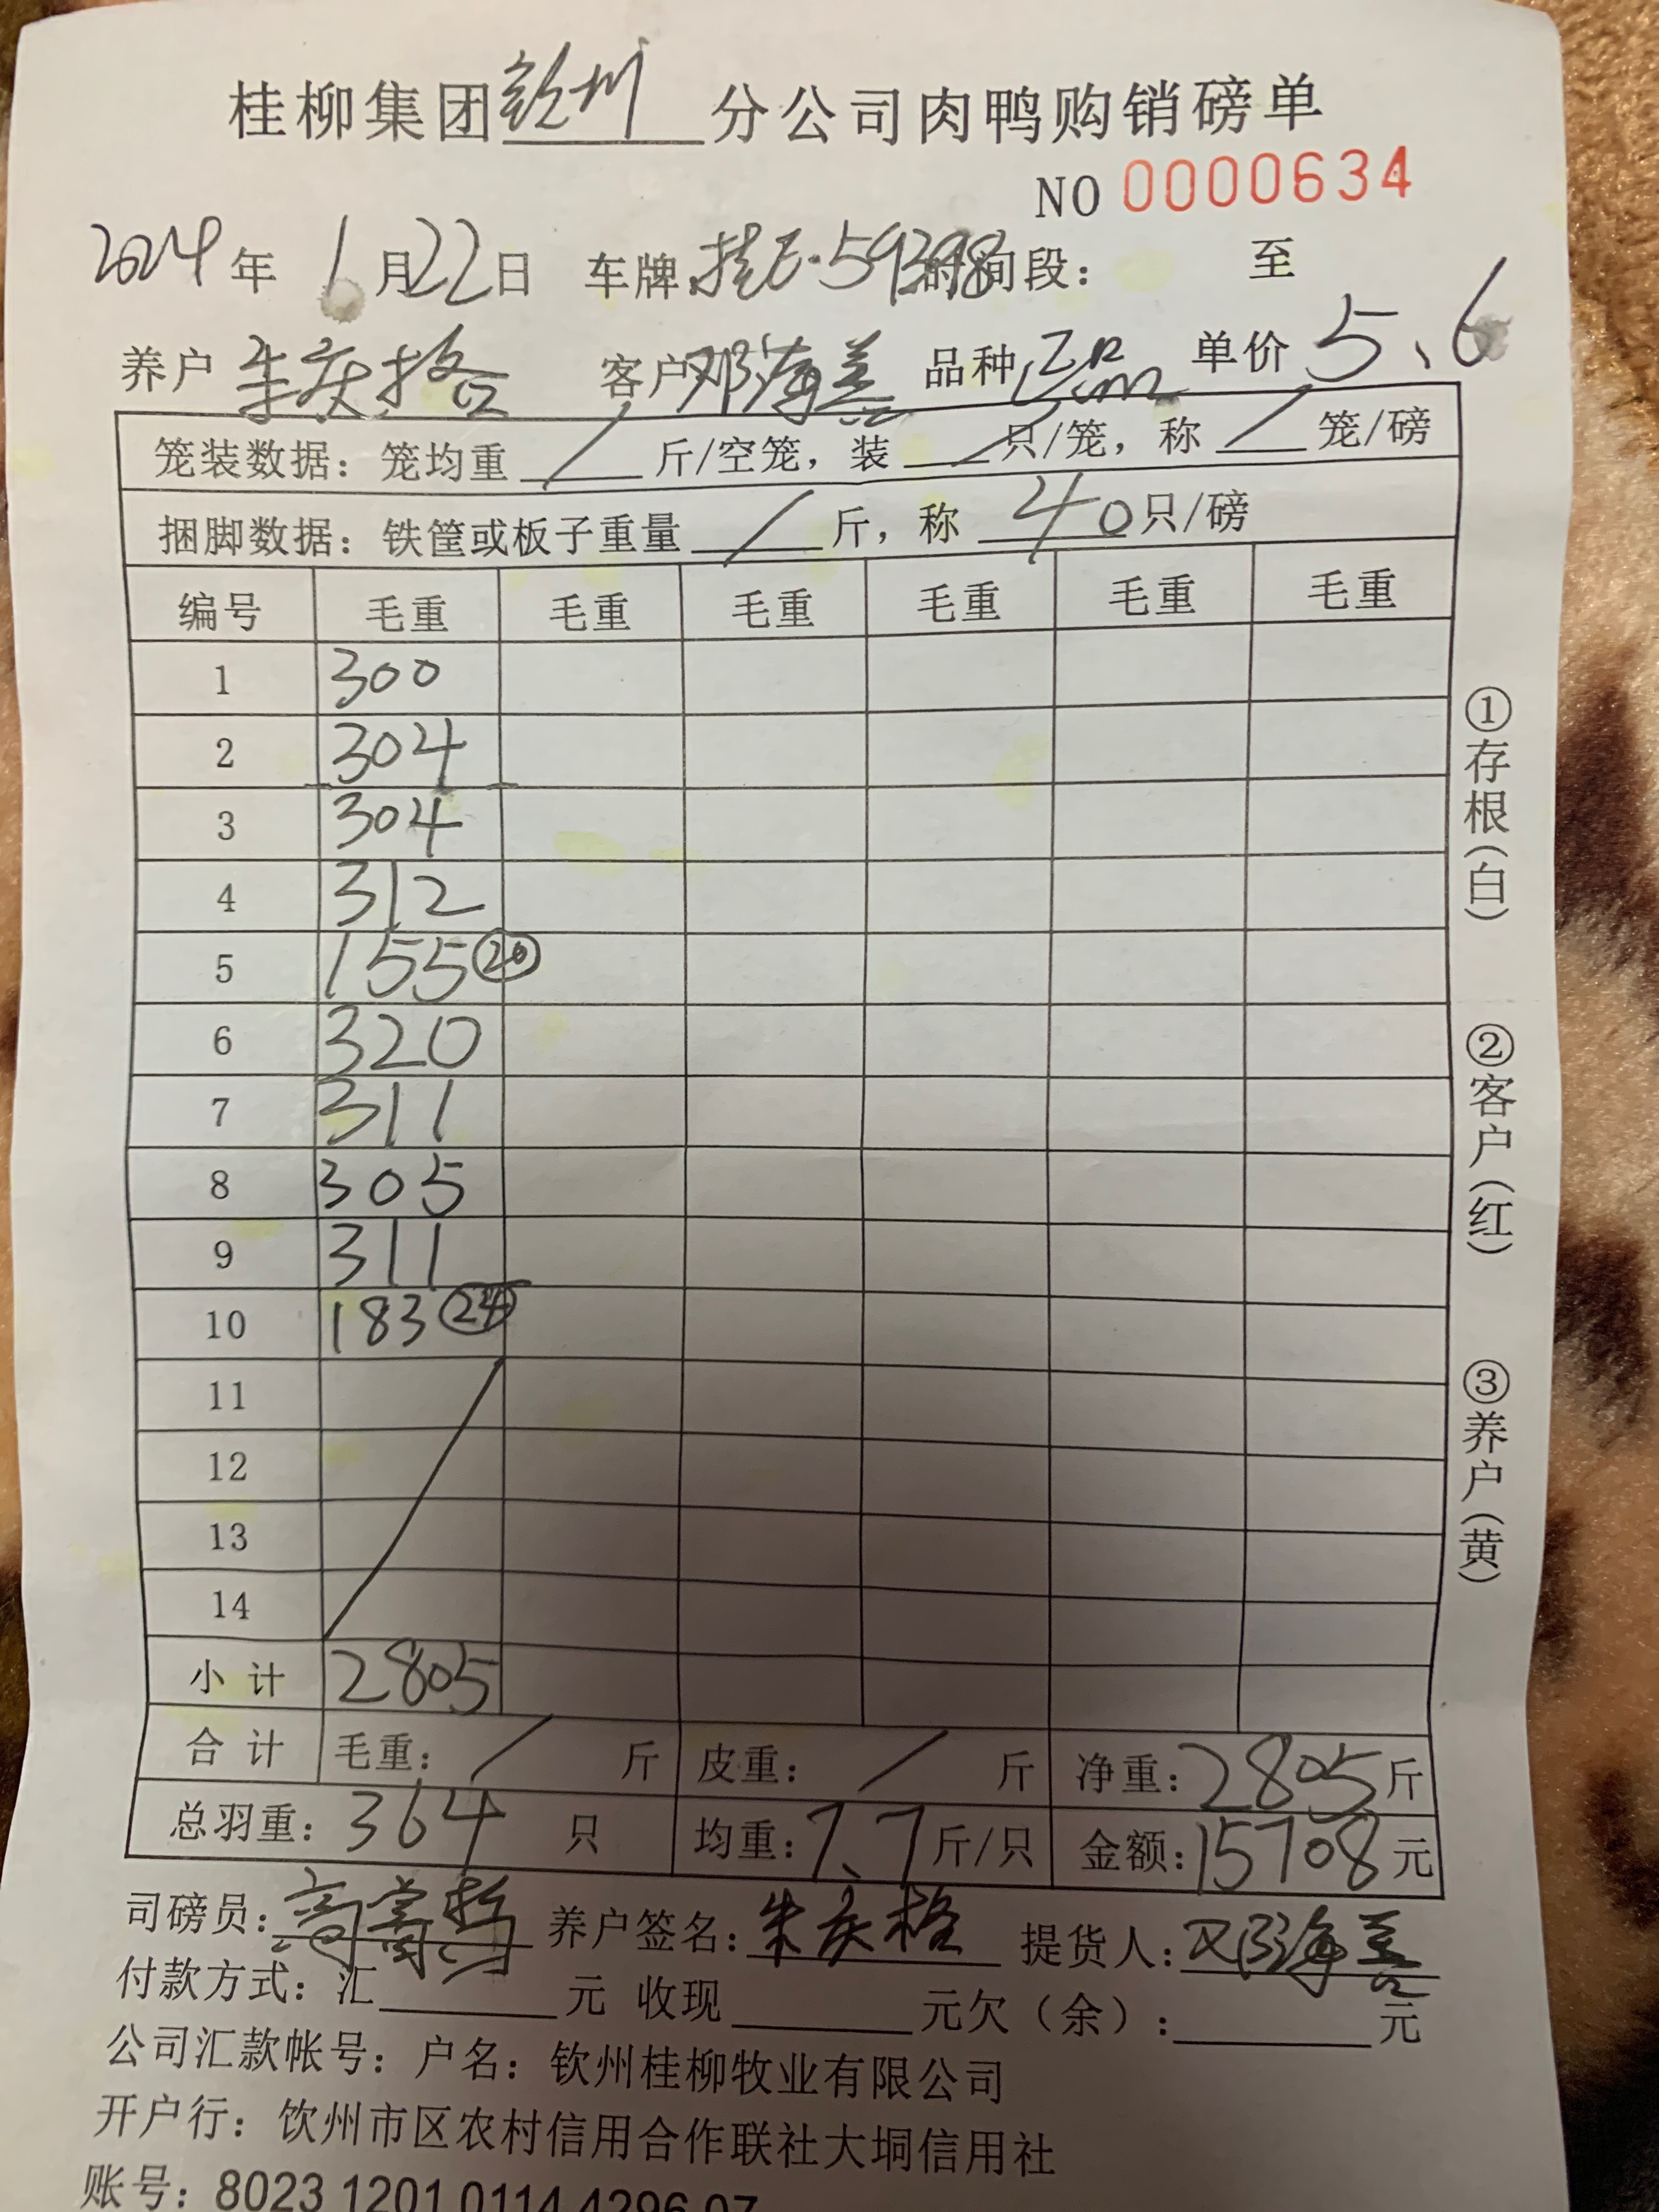 桂柳集团钦州分公司肉鸭购销磅单
NO 0000634
2024年1月22日 车牌:桂E·59398时间段: 至
养户 朱庆格 客户 邓海善 品种 正品 单价 5、6
笼装数据: 笼均重 / 斤/空笼, 装 / 只/笼, 称 / 笼/磅
捆脚数据: 铁筐或板子重量 / 斤, 称 40 只/磅
编号 毛重 毛重 毛重 毛重 毛重 毛重
1 300
2 304
3 304
4 312
5 155 ⑳
6 320
7 311
8 305
9 311
10 183 ㉔
11
12
13
14
小计 2805
合计 毛重: / 斤 皮重: / 斤 净重: 2805 斤
总羽重: 364 只 均重: 7、7 斤/只 金额: 15708 元
司磅员: 养户签名: 朱庆格 提货人: 邓海善
付款方式: 汇 元 收现 元欠(余): 元
公司汇款帐号: 户名: 钦州桂柳牧业有限公司
开户行: 钦州市区农村信用合作联社大垌信用社
账号: 8023 1201 0114 4296 07
①存根(白)
②客户(红)
③养户(黄)